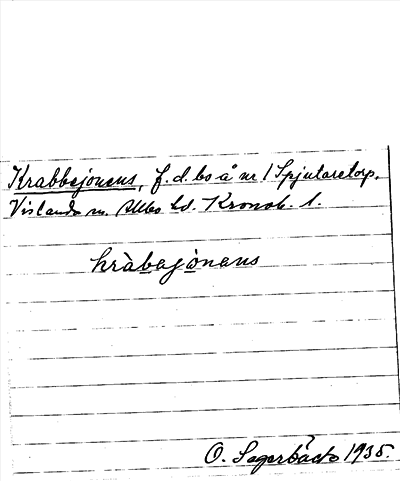 Krabbajonens, f.d. bo å nr 1 Spjutaretorp.
Vislanda sn. Allbo hd. Kronob. l.
kràbajònans
O. Sagerbäck 1935.